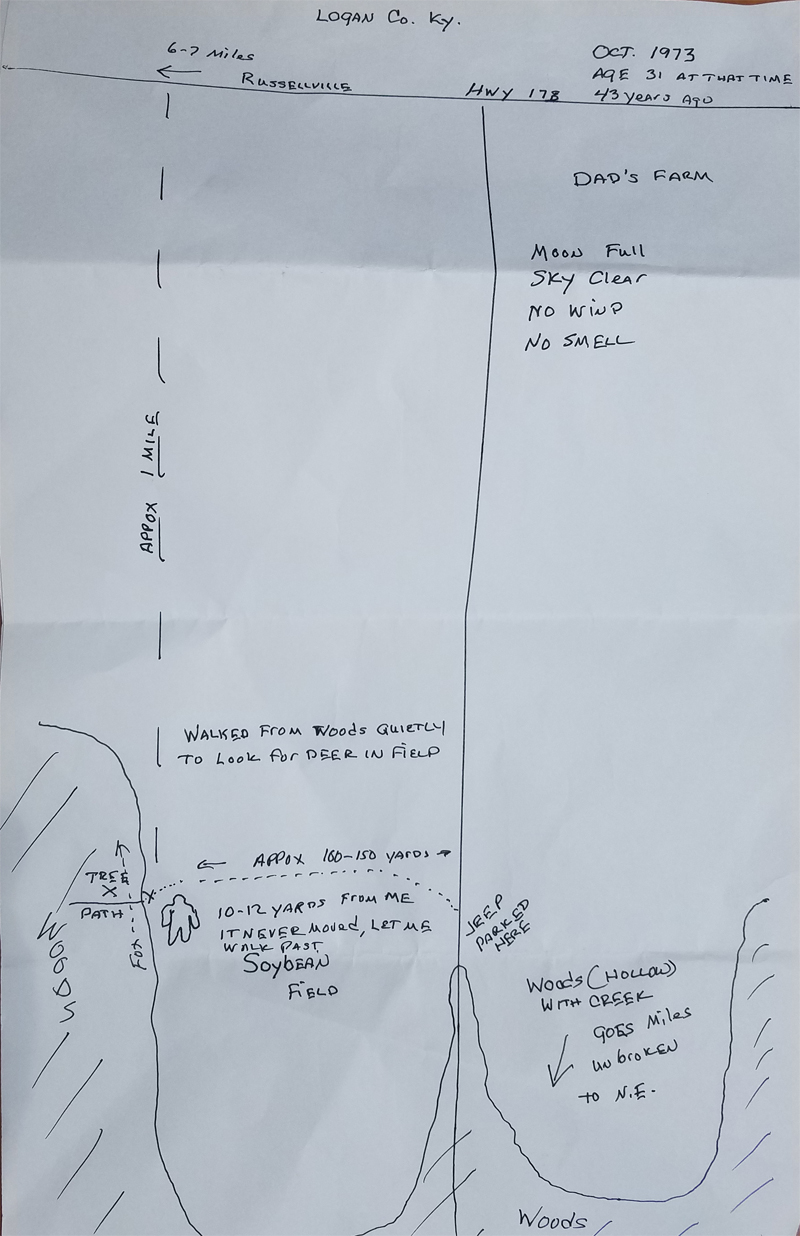 LOGAN Co. Ky.
6-7 Miles
RUSSELLVILLE
HWY 178
OCT. 1973
AGE 31 AT THAT TIME
43 years AgO
DAD'S FARM
MOON Full
SKY Clear
NO WIND
NO SMELL
APPOX 1 MILE
WALKED FROM WOODS QUIETLY
TO LOOK for DEER IN FIELD
APPOX 100-150 YARDS
TREE
X
X
PATH
FOX
WOODS
10-12 YARDS FROM ME
IT NEVER MOVED, LET ME
WALK PAST
SOYBEAN
FIELD
JEEP
PARKED
HERE
WOODS (HOLLOW)
WITH CREEK
GOES Miles
UNbROKEN
TO N.E.
WOODS